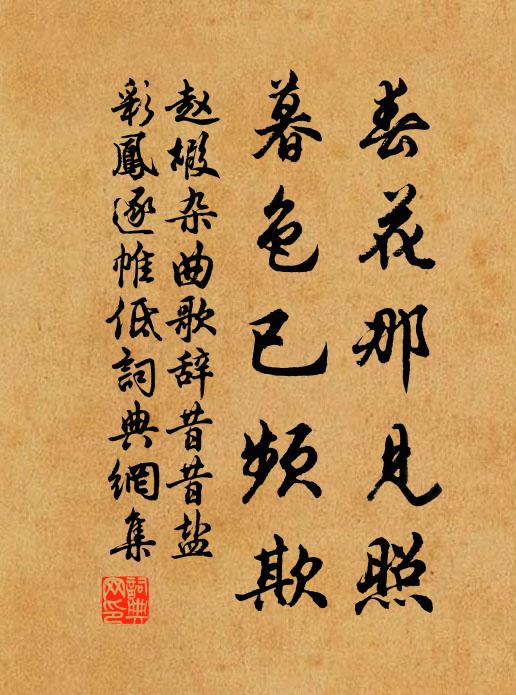 春花那見照
暮色已頻欺
赵嘏杂曲歌辞昔昔盐
彩鳳逐帷低詞典網集
詞典网印